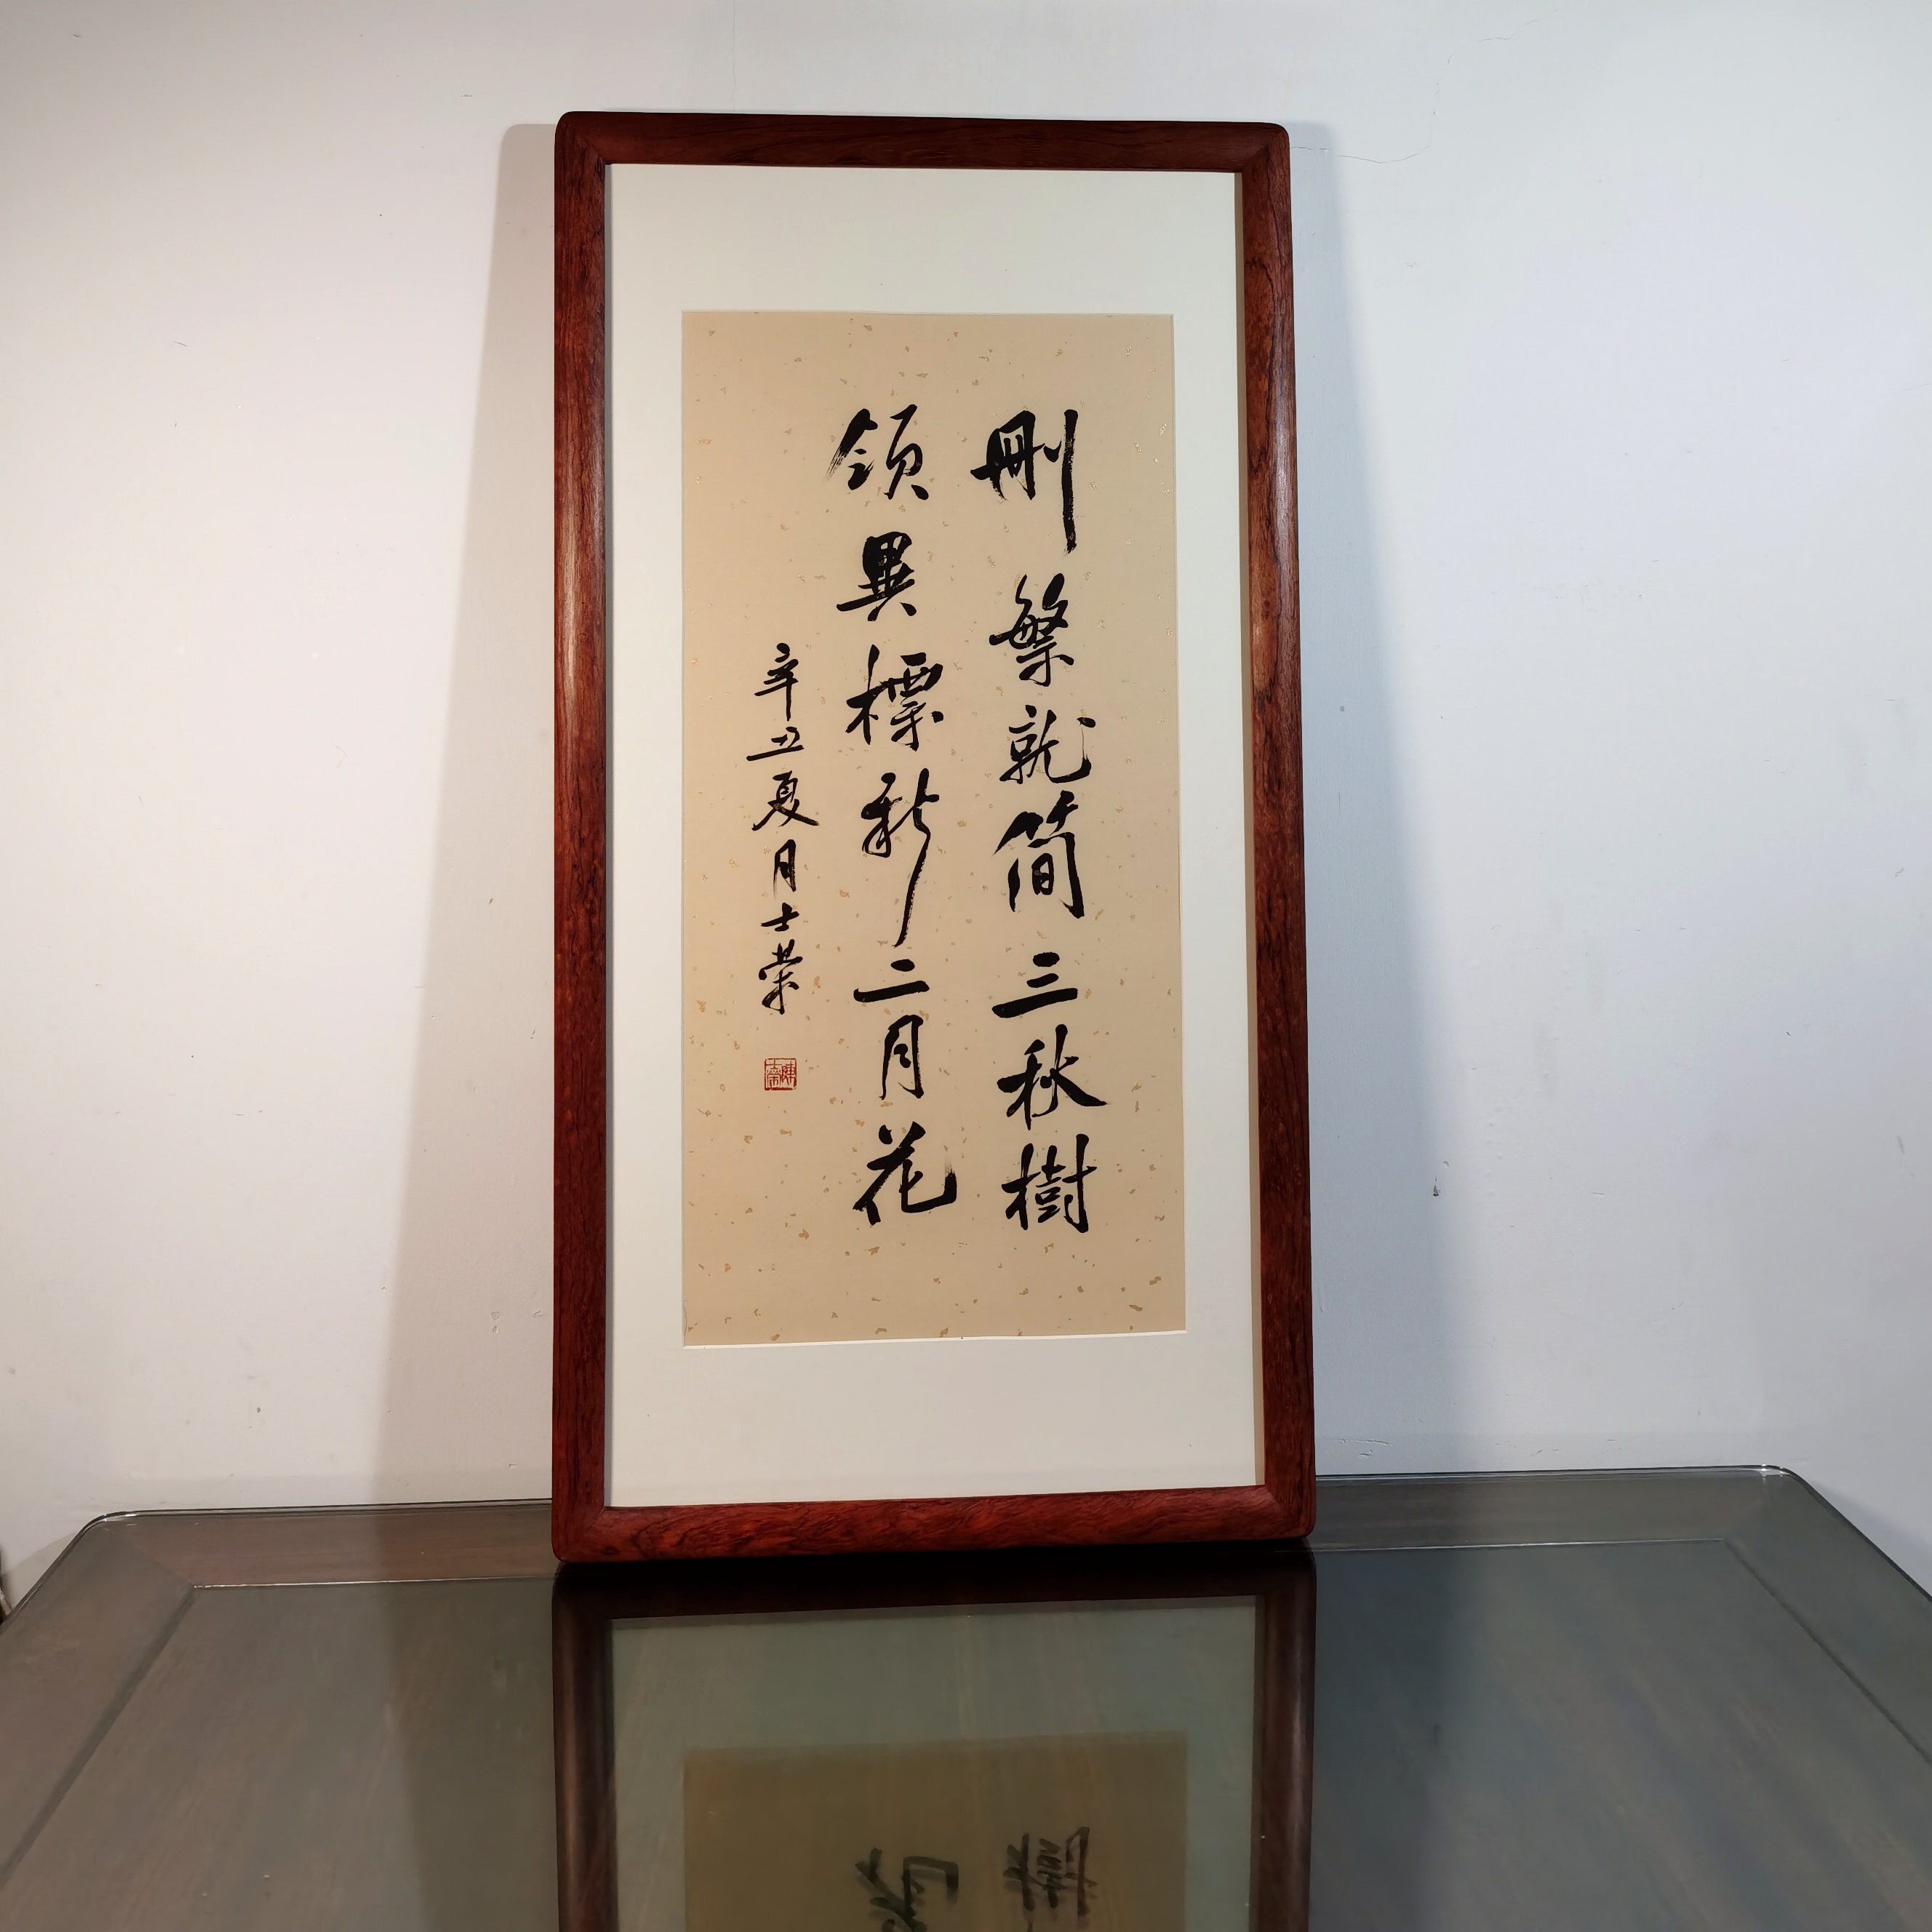 刪繁就简三秋樹
領異標新二月花
辛丑夏月士荣